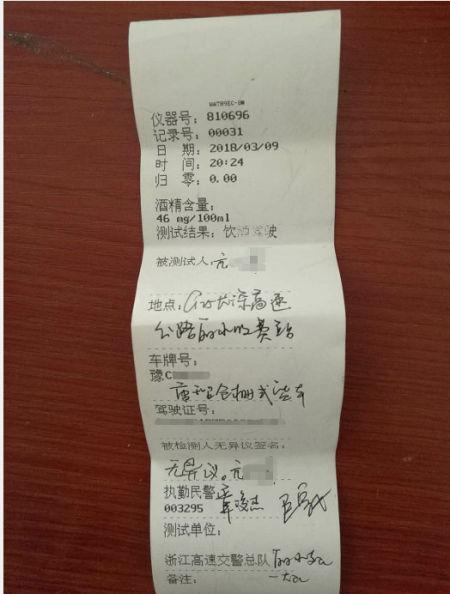 仪器号：810696
记录号：00031
日 期：2018/03/09
时 间：20:24
归 零：0.00
酒精含量：
46 mg/100ml
测试结果：饮酒驾驶
被测试人：元
地点：G25长深高速
公路丽水收费站
车牌号：
豫C
重型仓栅式货车
驾驶证号：
被检测人无异议签名：
无异议。元
执勤民警
003295
测试单位：
浙江高速交警总队
备注：